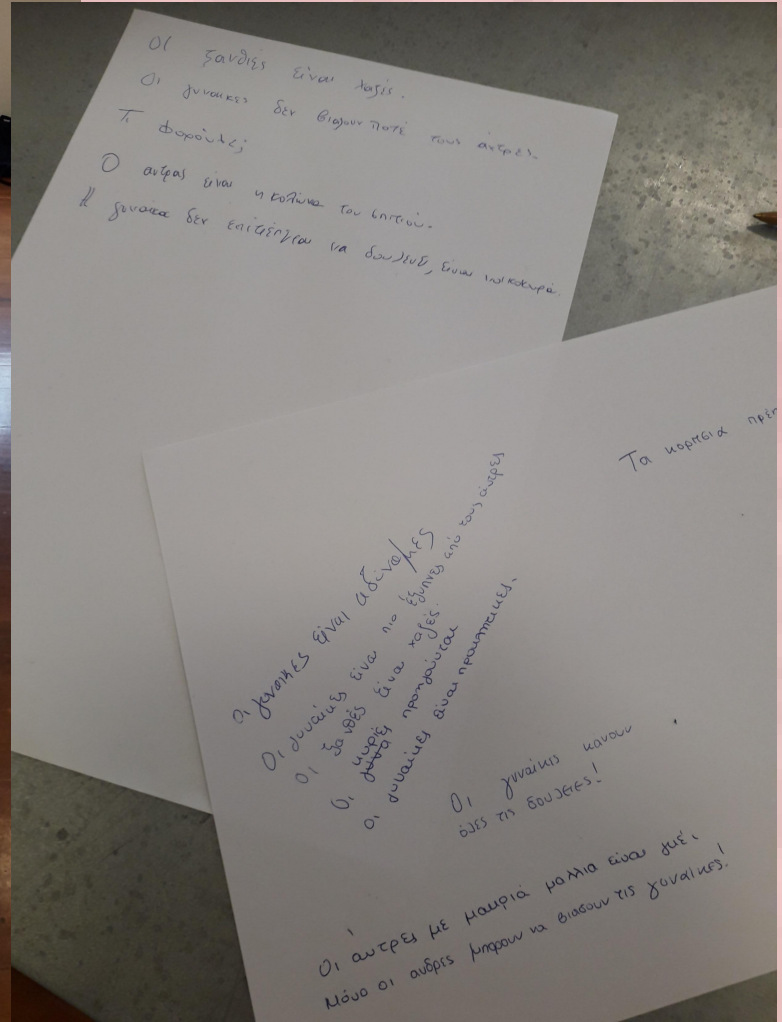 Οι ξανθιές είναι χαζές.
Οι γυναικες δεν βιαζουν ποτέ τους άντρες.
Τι φορούσε;
Ο αντρας είναι η κολώνα του σπιτιού.
Η γυναικα δεν επιτρέπεται να δουλευει, είναι νοικοκυρά.
Τα κορτσια πρέπ
Οι γυναικες είναι αδύναμες
Οι γυναίκες είναι πιο έξυπνες από τους άντρες
Οι ξανθές είναι χαζές.
Οι κυριές προκαλούνται
Οι γυναίκες είναι προκλητικες.
Οι γυναίκες κανουν
όλες τις δουλειες!
Οι αντρες με μακριά μαλλια είναι γκέι
Μόνο οι ανδρες μπορουν να βιασουν τις γυναίκες!